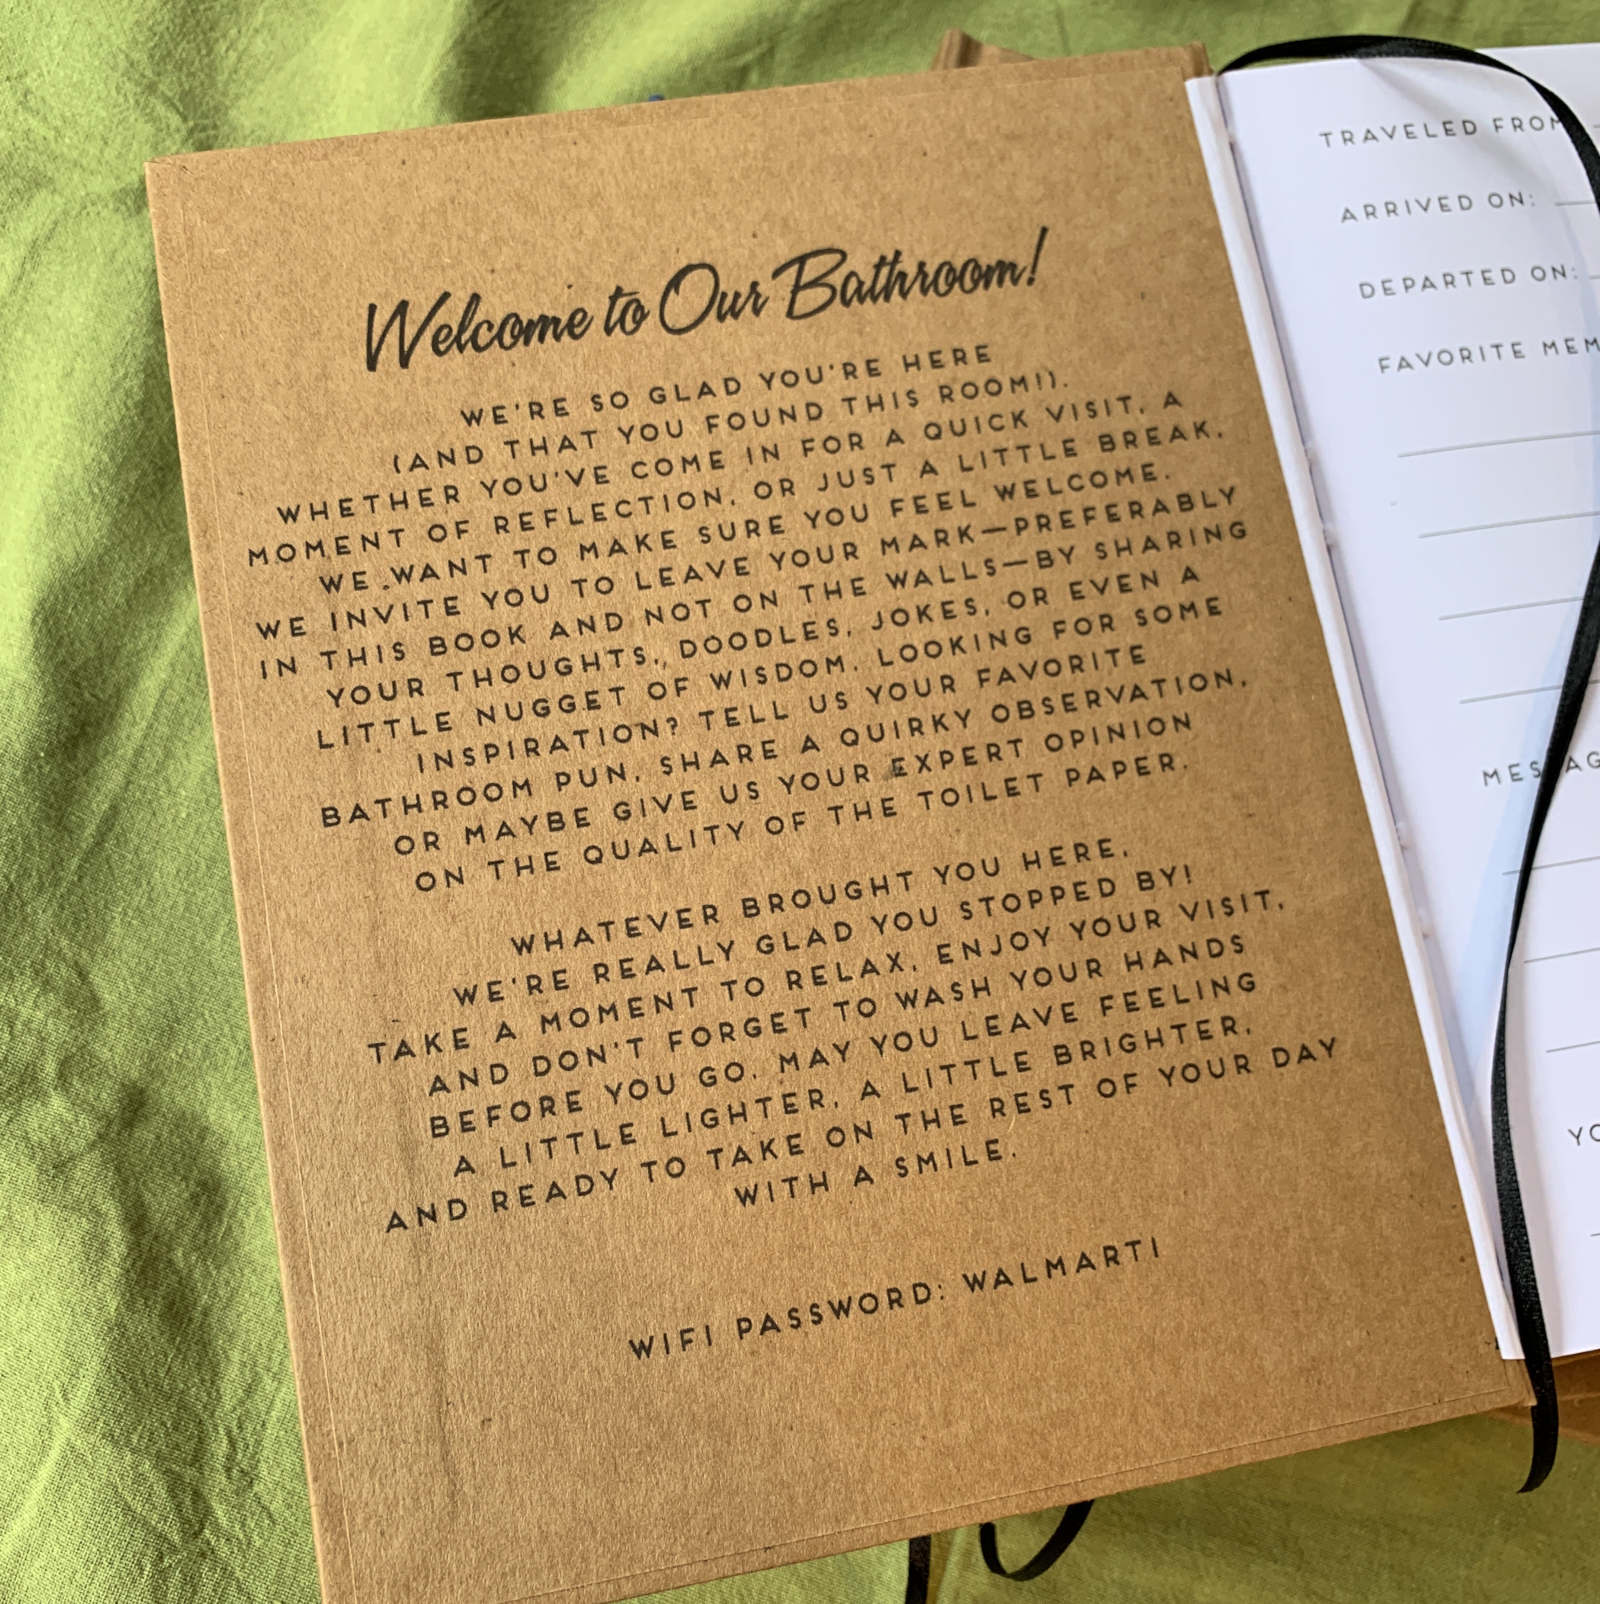 Welcome to Our Bathroom!
WE'RE SO GLAD YOU'RE HERE
(AND THAT YOU FOUND THIS ROOM!).
WHETHER YOU'VE COME IN FOR A QUICK VISIT, A
MOMENT OF REFLECTION, OR JUST A LITTLE BREAK,
WE WANT TO MAKE SURE YOU FEEL WELCOME.
WE INVITE YOU TO LEAVE YOUR MARK—PREFERABLY
IN THIS BOOK AND NOT ON THE WALLS—BY SHARING
YOUR THOUGHTS, DOODLES, JOKES, OR EVEN A
LITTLE NUGGET OF WISDOM. LOOKING FOR SOME
INSPIRATION? TELL US YOUR FAVORITE
BATHROOM PUN, SHARE A QUIRKY OBSERVATION,
OR MAYBE GIVE US YOUR EXPERT OPINION
ON THE QUALITY OF THE TOILET PAPER.
WHATEVER BROUGHT YOU HERE,
WE'RE REALLY GLAD YOU STOPPED BY!
TAKE A MOMENT TO RELAX, ENJOY YOUR VISIT,
AND DON'T FORGET TO WASH YOUR HANDS
BEFORE YOU GO. MAY YOU LEAVE FEELING
A LITTLE LIGHTER, A LITTLE BRIGHTER,
AND READY TO TAKE ON THE REST OF YOUR DAY
WITH A SMILE.
WIFI PASSWORD: WALMART1
TRAVELED FROM
ARRIVED ON:
DEPARTED ON:
FAVORITE